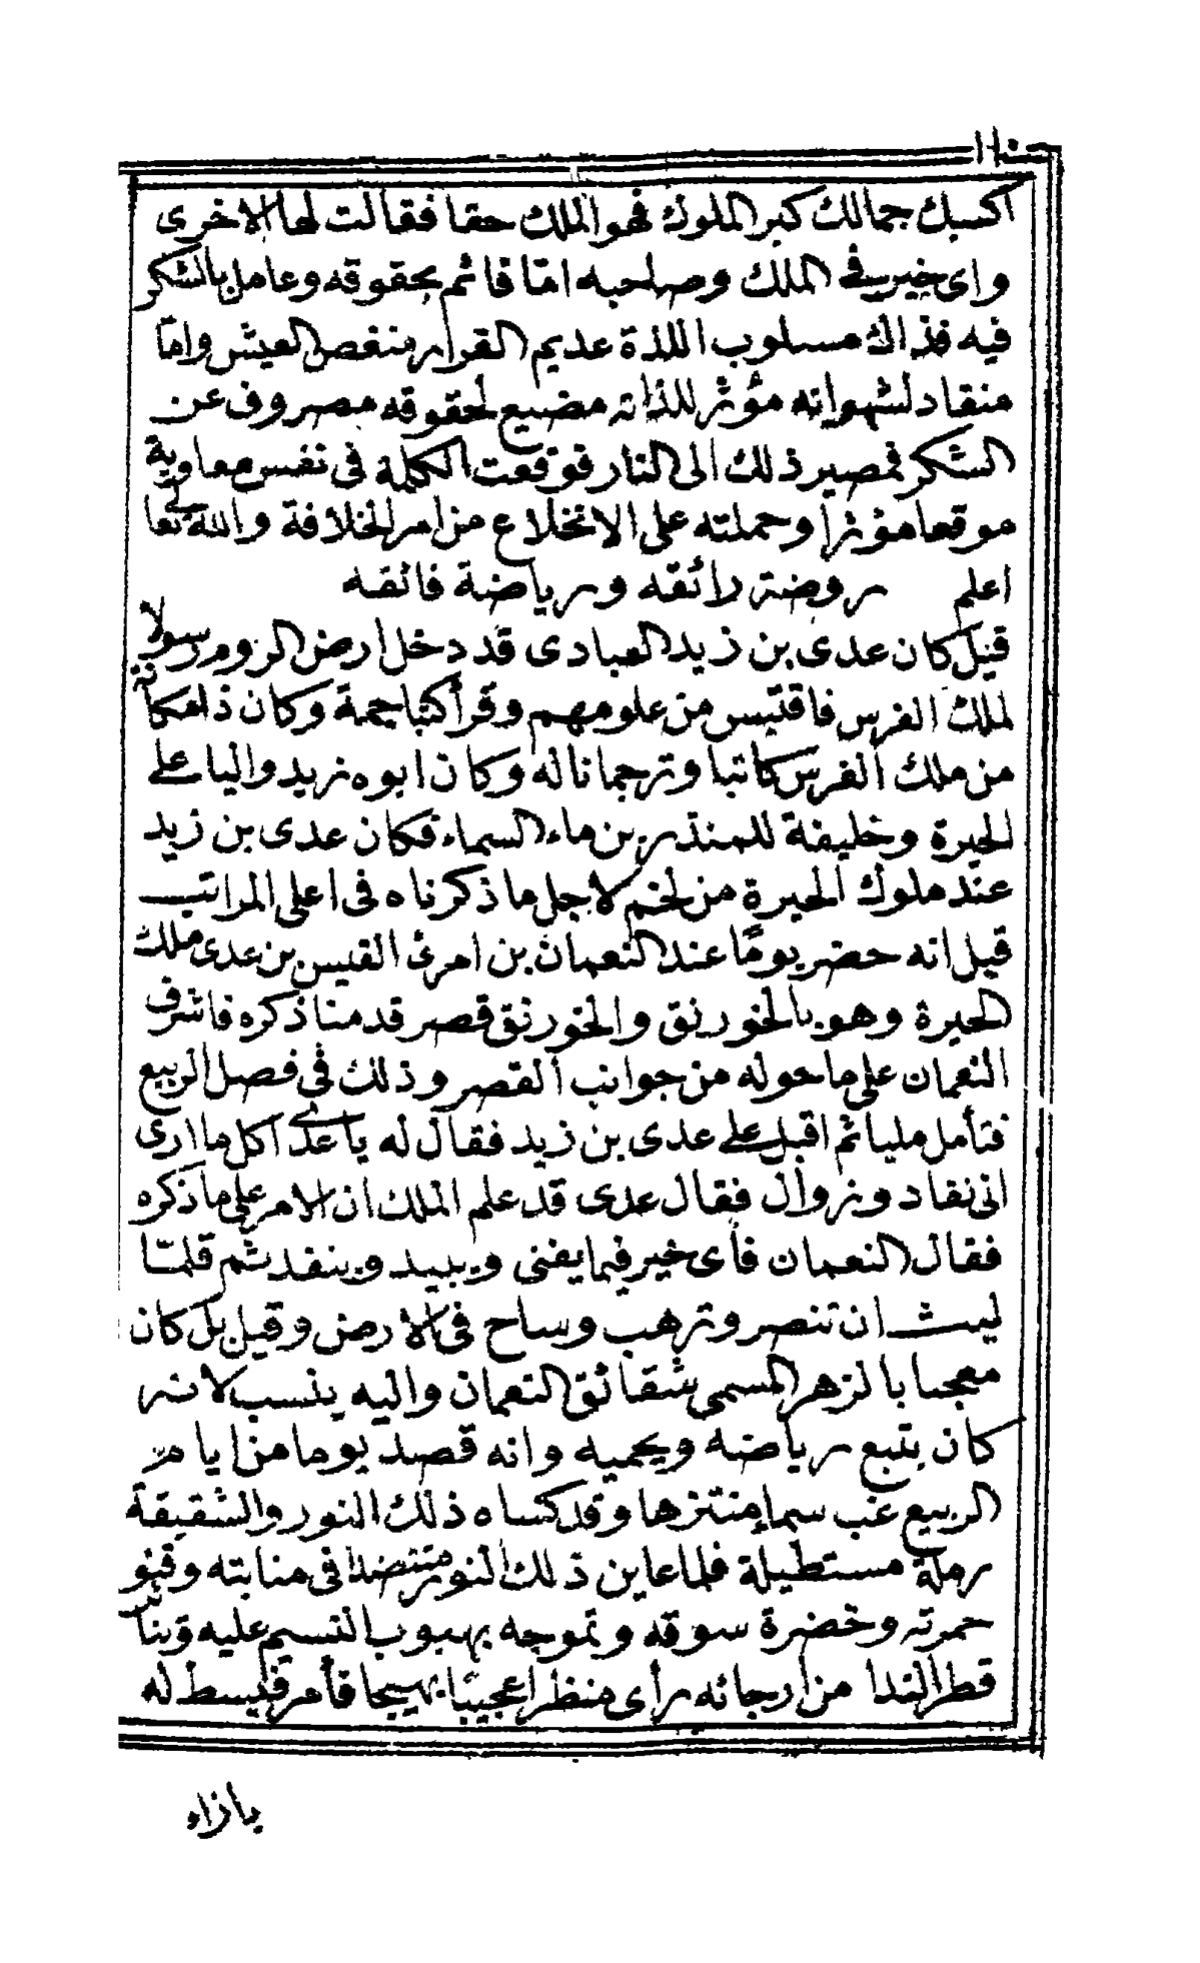 ١١٠
اكسبك جمالك كبر الملوك فهو الملك حقا فقالت لها الاخرى
واى خير فى الملك وصاحبه امّا قائم بحقوقه وعامل بالشكر
فيه فذاك مسلوب اللذة عديم القرار منغص العيش وامّا
منقاد لشهواته مؤثر للذاته مضيع لحقوقه مصروف عن
الشكر فمصير ذلك الى النار فوقعت الكلمة فى نفس معاوية
موقعا مؤثرا وحملته على الانخلاع من امر الخلافة والله تعالى
اعلم روضة رائقه ورياضة فائقه
قيل كان عدى بن زيد العبادى قد دخل ارض الروم رسولا
لملك الفرس فاقتبس من علومهم وقرأ كتبا جمة وكان ذا مكانة
من ملك الفرس كاتبا وترجمانا له وكان ابوه زيد واليا على
الحيرة وخليفة للمنذر بن ماء السماء فكان عدى بن زيد
عند ملوك الحيرة من لخم لاجل ما ذكرناه فى اعلى المراتب
قيل انه حضر يومًا عند النعمان بن امرئ القيس بن عدى ملك
الحيرة وهو بالخورنق والخورنق قصر قدمنا ذكره فاشرف
النعمان على ما حوله من جوانب القصر وذلك فى فصل الربيع
فتأمل مليا ثم اقبل على عدى بن زيد فقال له يا عدى اكل ما ارى
الى نفاد وزوال فقال عدى قد علم الملك ان الامر على ما ذكره
فقال النعمان فأى خير فيما يفنى ويبيد وينفد ثم قلمّا
لبث ان تنصر وترهب وساح فى الارض وقيل بل كان
معجبا بالزهر المسمى شقائق النعمان واليه ينسب لانه
كان يتبع رياضه ويحميه وانه قصد يوما من ايام
الربيع غب سماء منتزها وقد كساه ذلك النور والشقيقة
رملة مستطيلة فلما عاين ذلك النور متنضدا فى منابته وقنو
حمرته وخضرة سوقه وتموجه بهبوب النسيم عليه وتناثر
قطر الندا من ارجائه رأى منظرا عجيبًا بهيجا فأمر فبسط له
بازاء